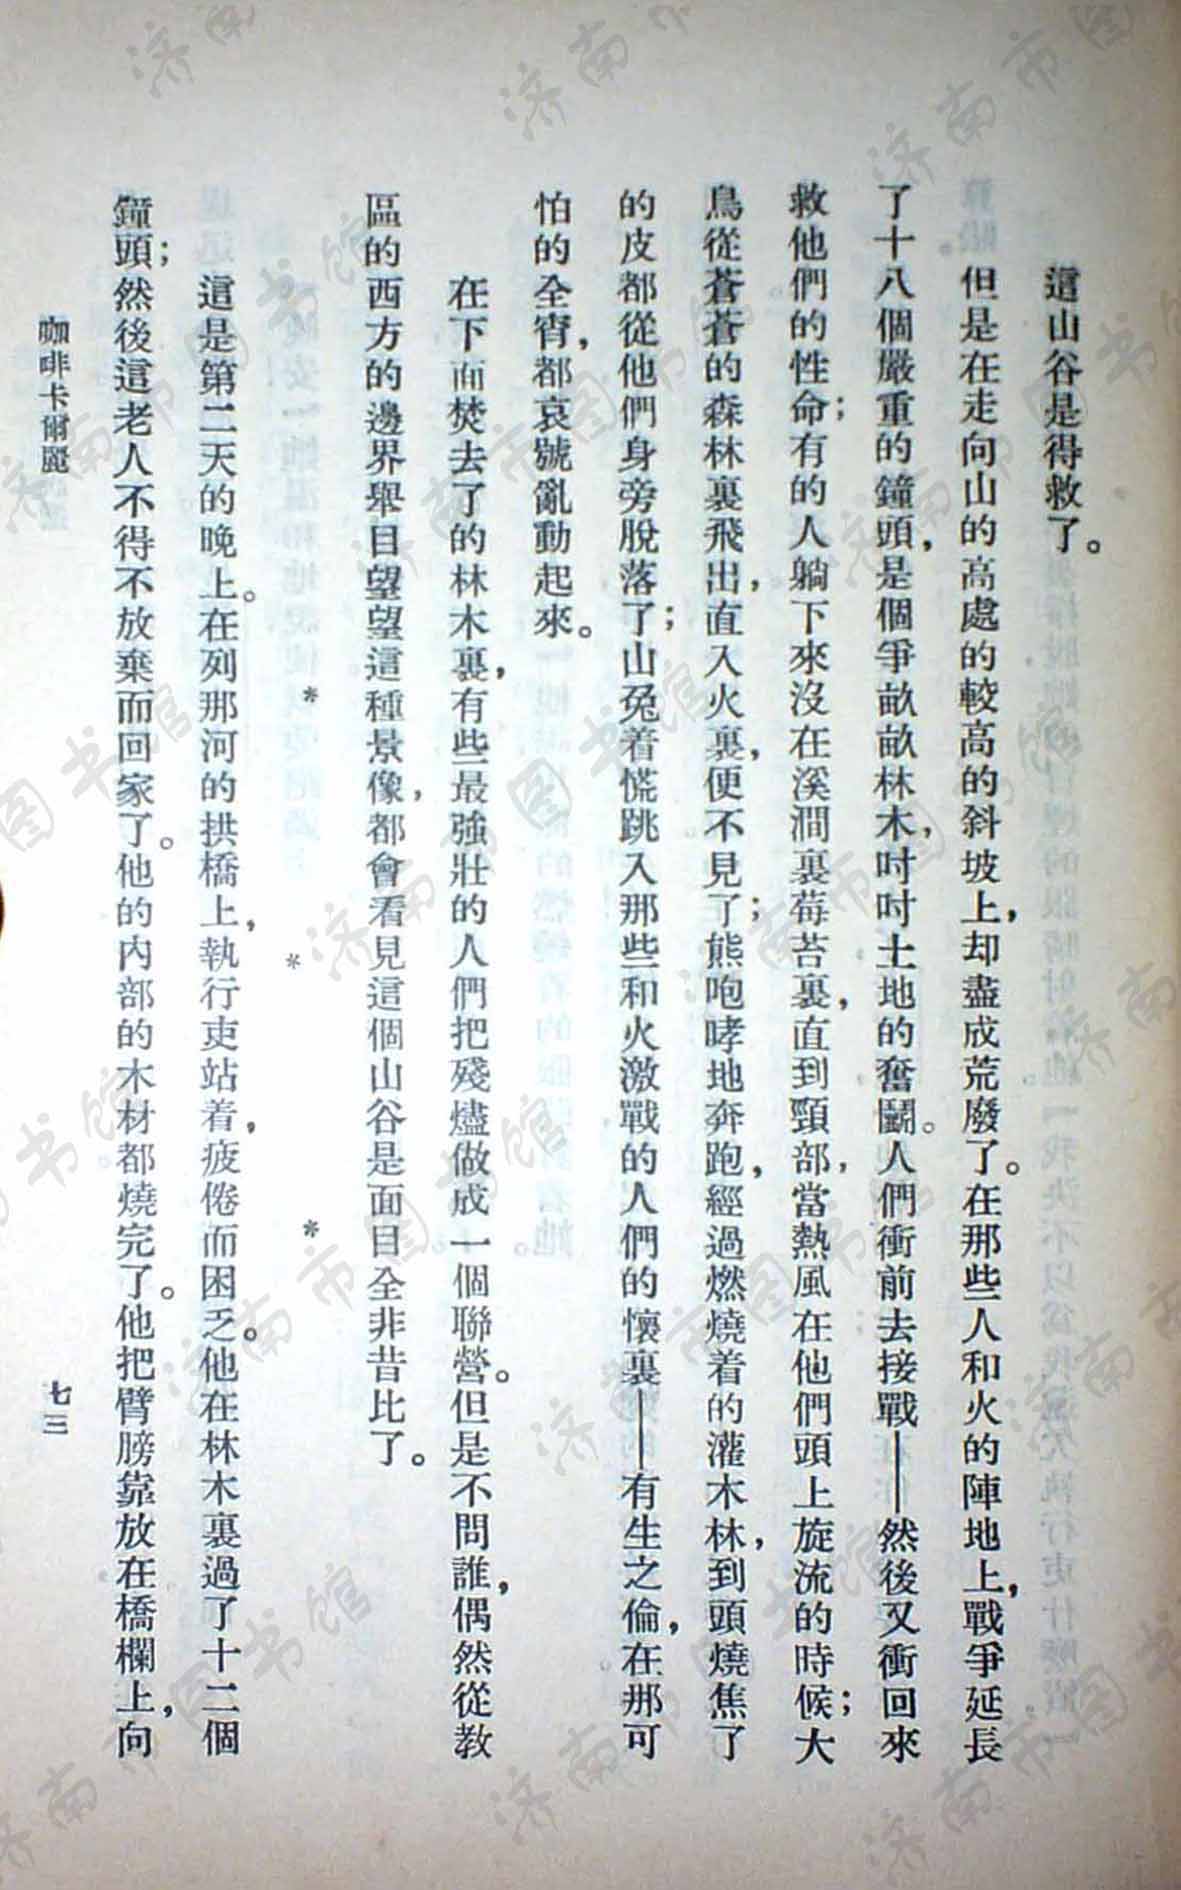 這山谷是得救了。
但是在走向山的高處的較高的斜坡上，却盡成荒廢了。在那些人和火的陣地上，戰爭延長
了十八個嚴重的鐘頭，是個爭畝畝林木，吋吋土地的奮鬭。人們衝前去接戰——然後又衝回來
救他們的性命；有的人躺下來沒在溪澗裏莓苔裏，直到頸部，當熱風在他們頭上旋流的時候；大
鳥從蒼蒼的森林裏飛出，直入火裏，便不見了；熊咆哮地奔跑，經過燃燒着的灌木林，到頭燒焦了
的皮都從他們身旁脫落了；山兔着慌跳入那些和火激戰的人們的懷裏——有生之倫，在那可
怕的全宵，都哀號亂動起來。
在下面焚去了的林木裏，有些最強壯的人們把殘燼做成一個聯營。但是不問誰，偶然從教
區的西方的邊界舉目望望這種景像，都會看見這個山谷是面目全非昔比了。
* * *
這是第二天的晚上。在列那河的拱橋上，執行吏站着，疲倦而困乏。他在林木裏過了十二個
鐘頭；然後這老人不得不放棄而回家了。他的內部的木材都燒完了。他把臂膀靠放在橋欄上，向
咖啡卡爾麗
七三
济南市图书馆